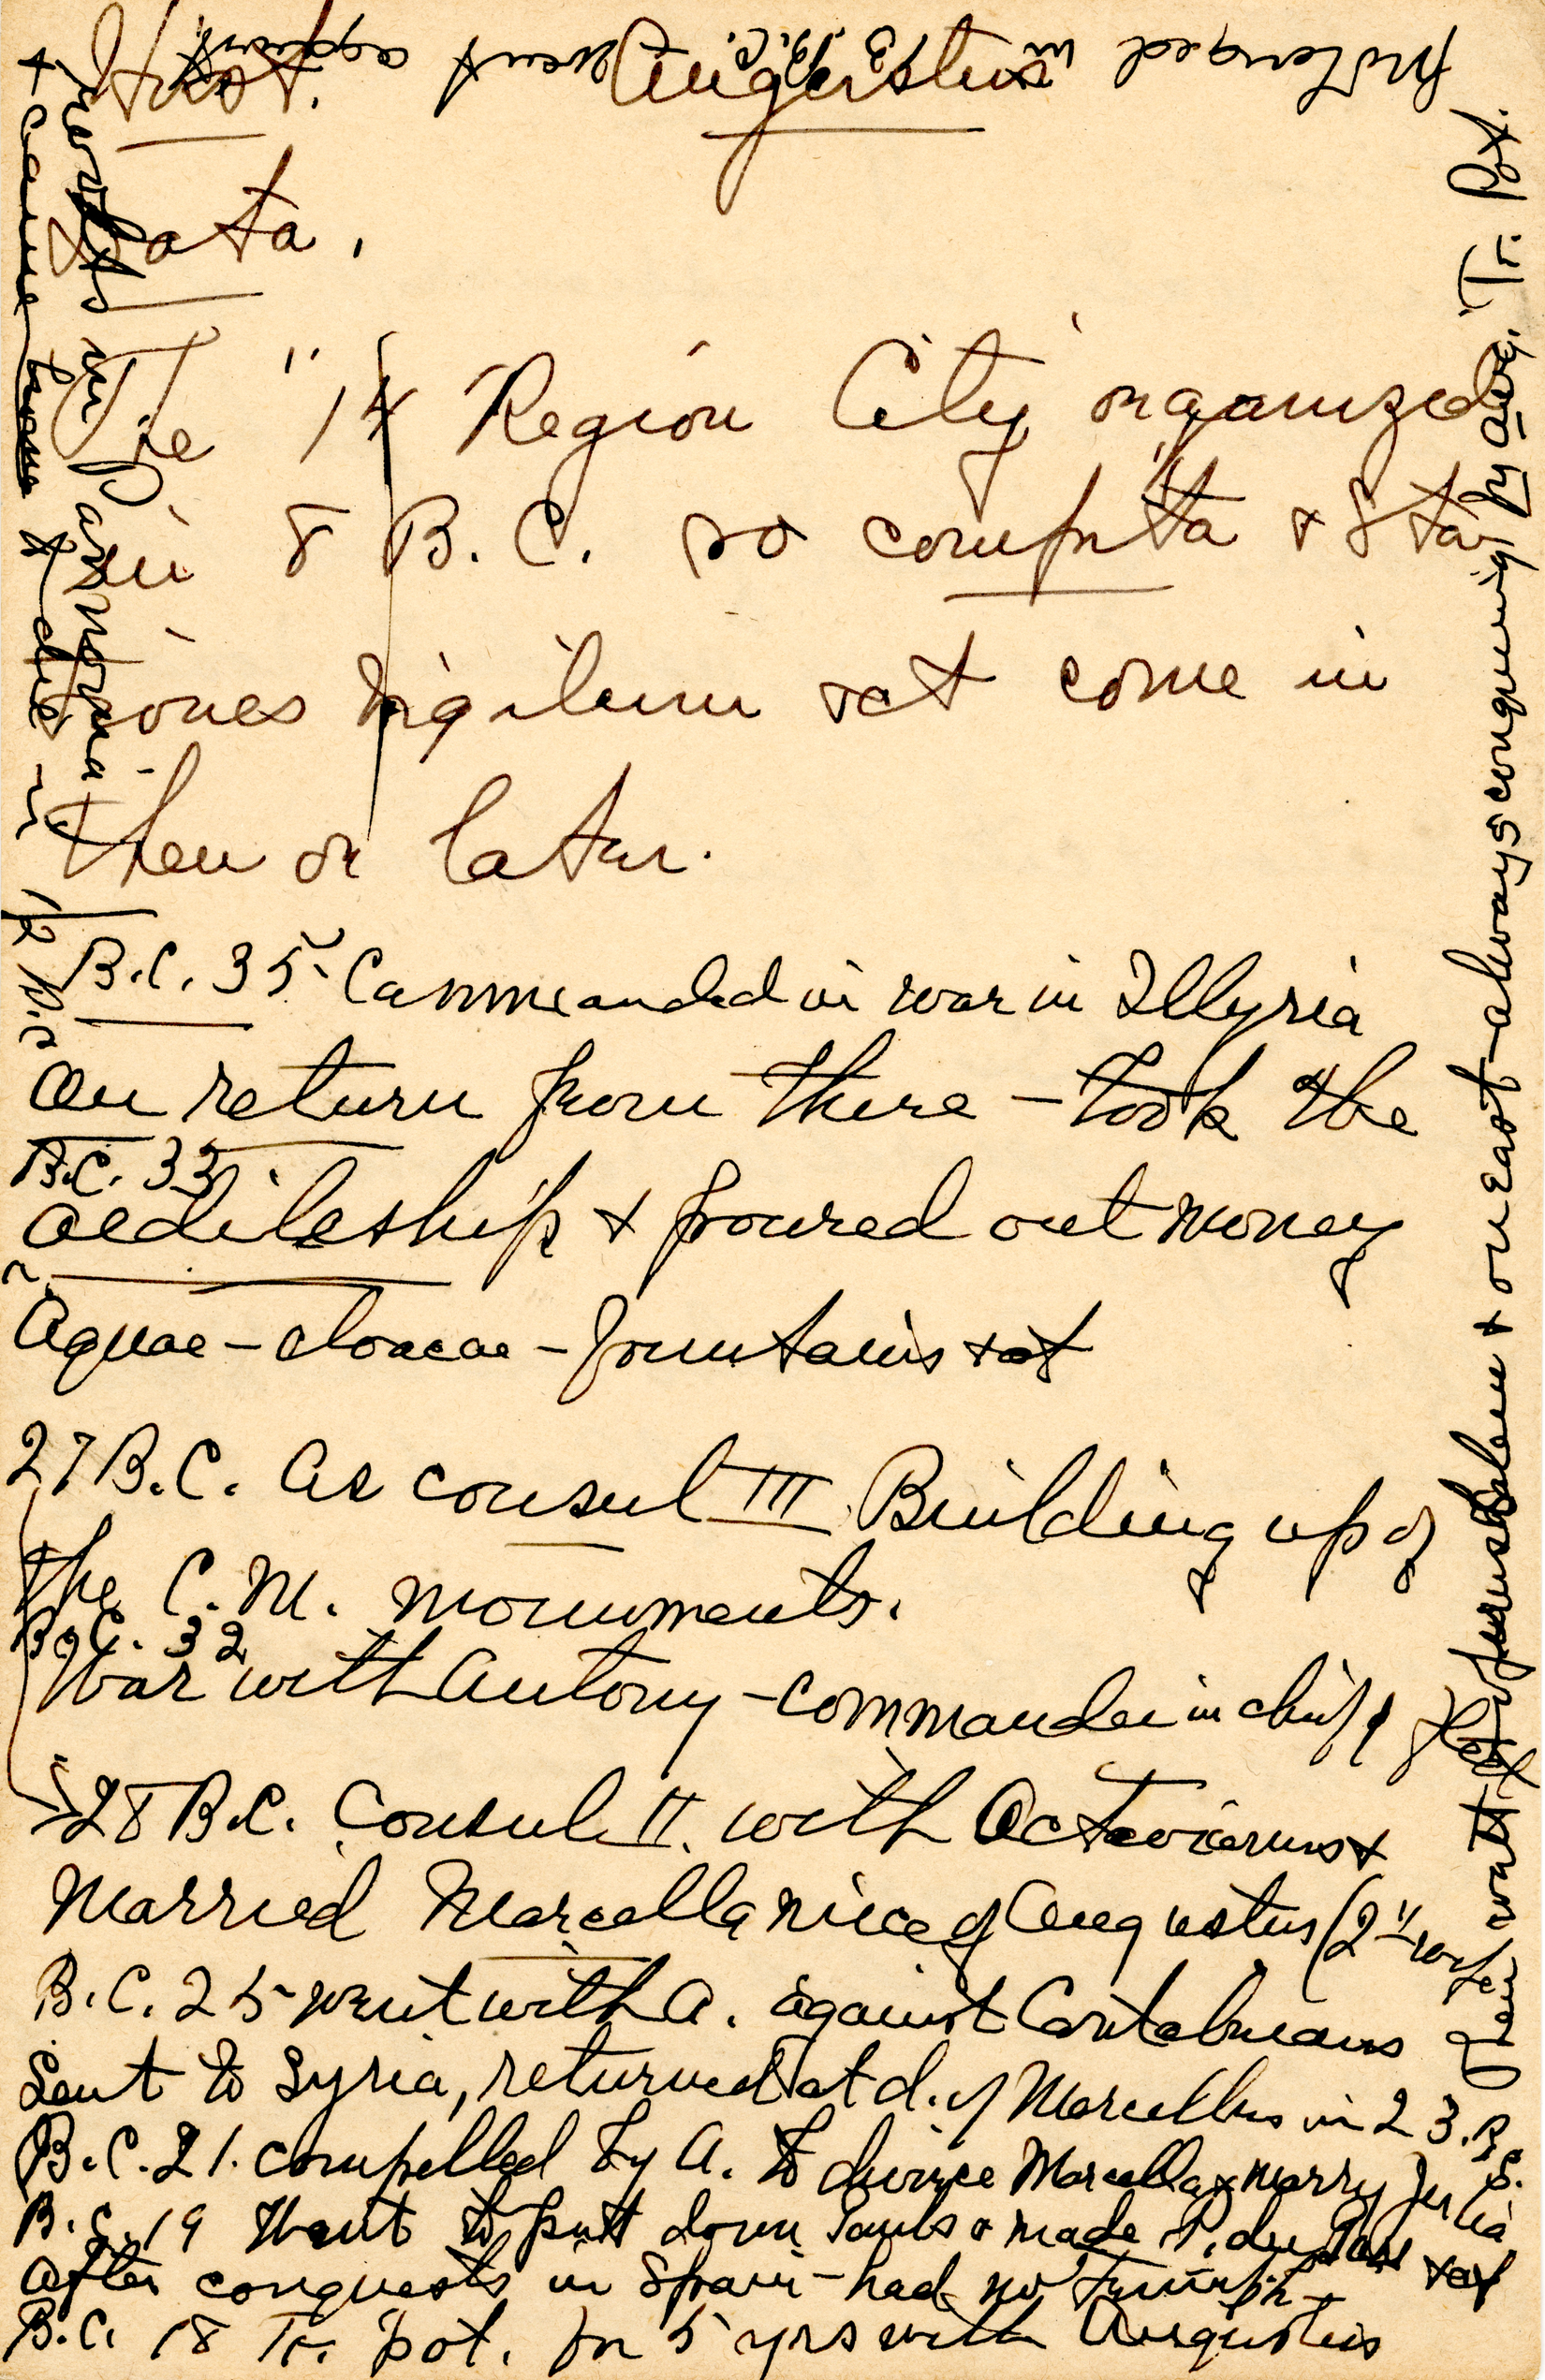 Hist. Augustus
Data.
The "14 Region City organized
in 8 B.C. so compita & Sta-
tiones Vigilum &ct come in
then or later.
B.C. 35 Commanded in war in Illyria
On return from there - took the
B.C. 33
aedileship & poured out money
Aquae - cloacae - fountains &ct
27 B.C. As consul III Building up of
the C. M. monuments.
B.C. 32
War with Antony - commander in chief
28 B.C. Consul II. with Octavianus &
Married Marcella niece of Augustus (2nd wife
B.C. 25 went with A. against Cantabrians
Sent to Syria, returned at d. of Marcellus in 23. B.C.
B.C. 21. compelled by A. to divorce Marcella & marry Julia
B.C. 19 Went to putt down Gauls & made P. du Gard &ct
After conquests in Spain - had no Triumph -
B.C. 18 Tr. pot. for 5 yrs with Augustus
then went to
Jerusalem & on East - always conquering by Aug. Tr. Pot.
prolonged in 13 B.C. & went against
revolts in Pannonia
& came home & die in
12 B.C.